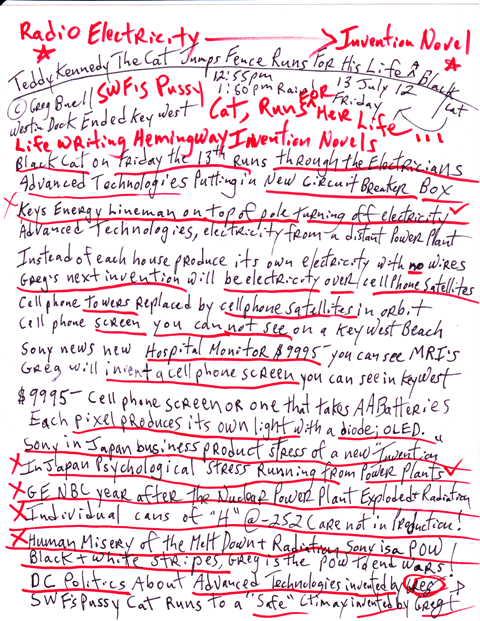 Radio Electricity → Invention Novel
Teddy Kennedy The Cat Jumps Fence Runs For His Life ^ Black Cat
12:55pm 13 July 12
© Greg Buell SWF's Pussy 1:50pm Friday
Westin Dock Ended Key West Cat, Runs FOR Her Life...
Life Writing Hemingway Invention Novels
Black Cat on Friday the 13th Runs through the Electricians
Advanced Technologies Putting in New Circuit Breaker Box
X Keys Energy Lineman on top of pole turning off electricity ✓
Advanced Technologies, electricity from a distant Power Plant
Instead of each house produce its own electricity with no wires
Greg's next invention will be electricity over cell Phone Satellites
Cell phone towers replaced by cellphone satellites in orbit
Cell phone screen you can not see on a Key West Beach
Sony news new Hospital Monitor $9995- you can see MRI's
Greg will invent a cell phone screen you can see in Key West
$9995- Cell phone screen or one that takes AA Batteries
Each pixel produces its own light with a diode; OLED.
Sony in Japan business product stress of a new "Invention"
X In Japan Psychological Stress Running from Power Plants ✓
X GE NBC year after the Nuclear Power Plant Exploded + Radiation
X Individual cans of "H" @ -252 C are not in Production!
X Human Misery of the Melt Down + Radiation, Sony is a POW!
Black + White Stripes, Greg is the POW to end Wars!
DC Politics About Advanced Technologies invented by Greg
SWF's Pussy Cat Runs to a "Safe" Climax invented by Greg +